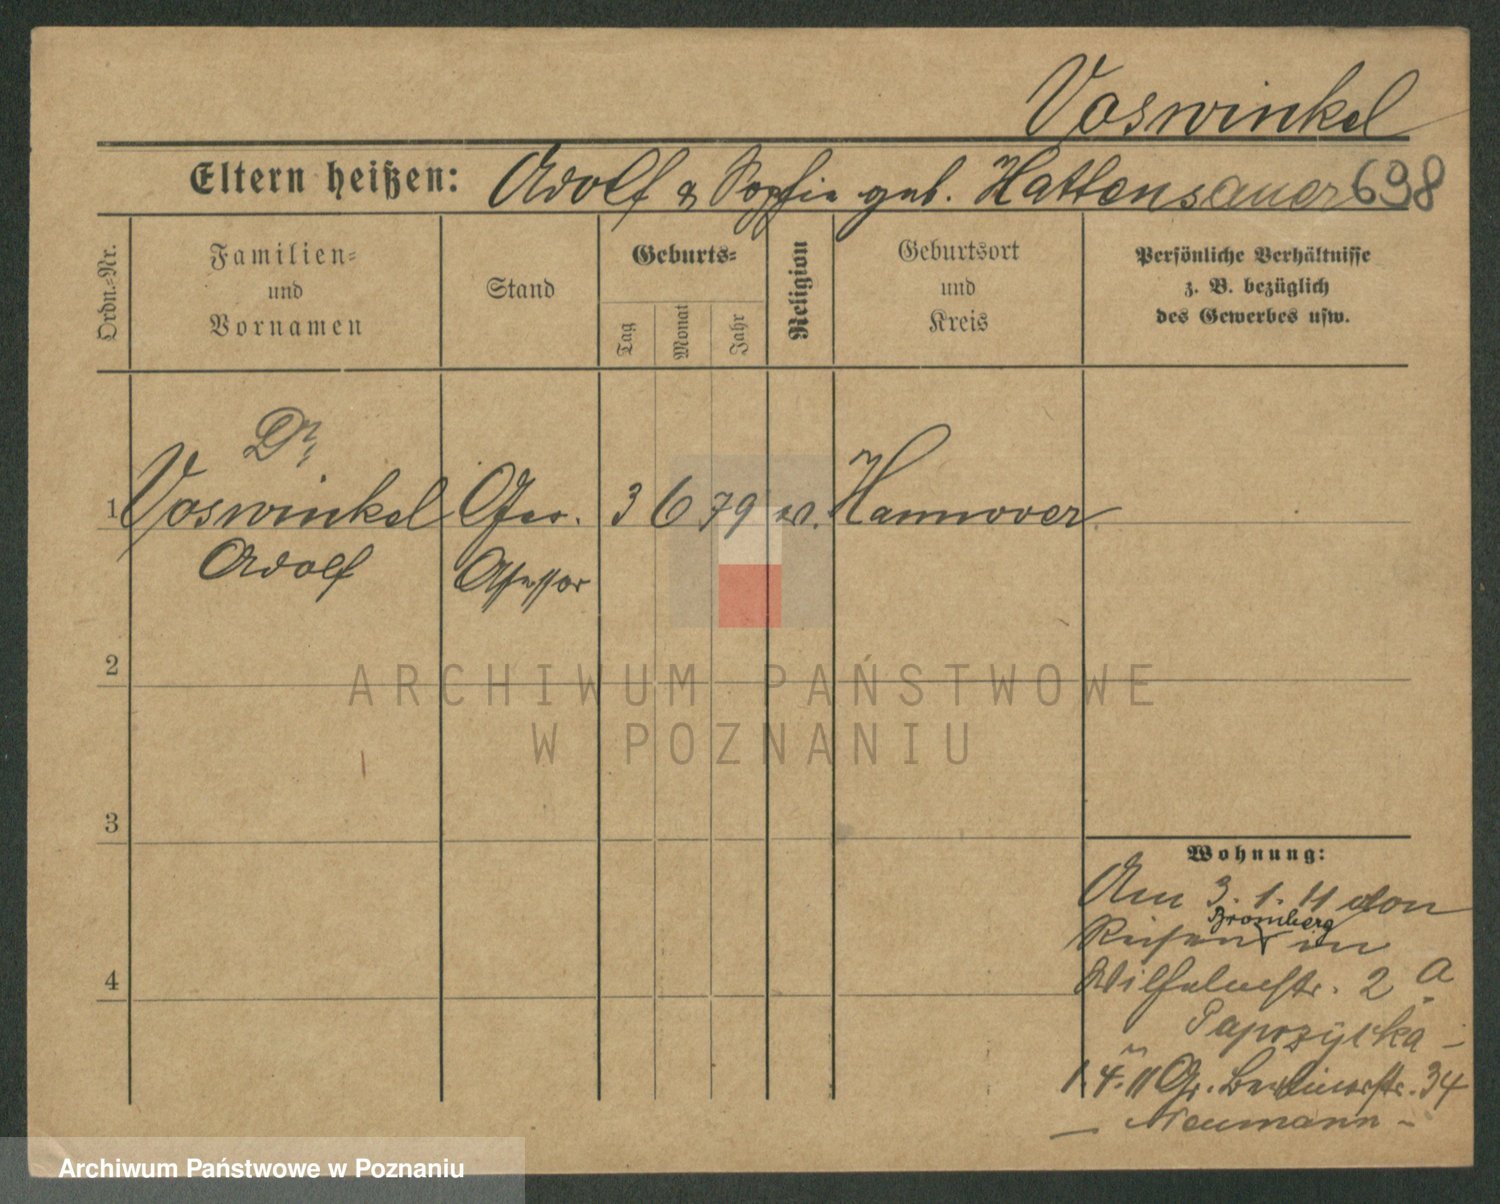 Voswinkel
Eltern heißen: Adolf & Sophie geb. Hattensauer 698
Ordn.-Nr.
Familien-
und
Vornamen
Stand
Geburts-
Tag
Monat
Jahr
Religion
Geburtsort
und
Kreis
Persönliche Verhältnisse
z. B. bezüglich
des Gewerbes usw.
Dr.
1 Voswinkel Ger. 3 6 79 ev. Hannover
Adolf Assessor
2
ARCHIWUM PAŃSTWOWE
W POZNANIU
3
Wohnung:
Am 3.1.11 von
Bromberg
Reisen in
4 Wilhelmstr. 2 a
Paprzycka -
1.4.11 Gr. Berlinerstr. 34
- Neumann -
Archiwum Państwowe w Poznaniu